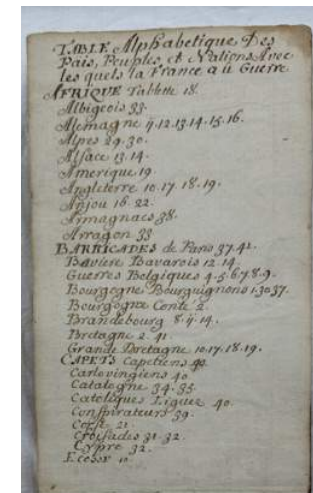 TABLE Alphabetique Des
Païs, Peuples, et Nations Avec
les quels la France a ü Guerre
AFRIQUE Tablette 18.
Albigeois 33.
Alemagne ij.12.13.14.15.16.
Alpes 29.30.
Alsace 13.14.
Amerique 19.
Angleterre 10.17.18.19.
Anjou 16.22.
Armagnacs 38.
Arragon 33
BARRICADES de Paris 37.41.
Baviere Bavarois 12.14.
Guerres Belgiques 4.5.6.7.8.9.
Bourgogne Bourguignons 1.30.37.
Bourgogne Conté 2.
Brandebourg 8.ij.14.
Bretagne 2.41.
Grande Bretagne 10.17.18.19.
CAPETS Capetiens
Carlovingiens 40
Catalogne 34.35.
Catoliques Liguez 40.
Conspirateurs 39.
Corse 21
Croisades 31.32.
Cypre 32.
Ecosse 10.